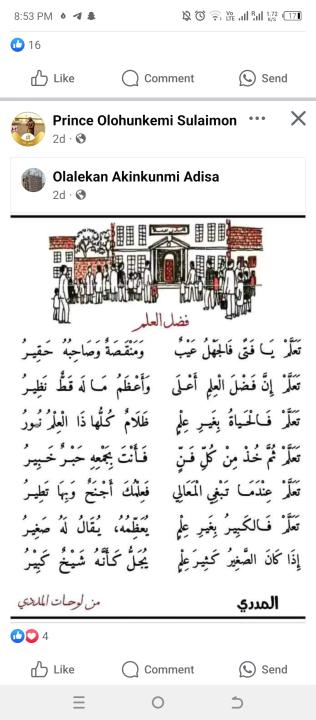 8:53 PM
Vo LTE 1.72 K/S 17
16
Like Comment Send
Prince Olohunkemi Sulaimon
2d
Olalekan Akinkunmi Adisa
2d
فضل العلم
تَعَلَّمْ يَا فَتًى فَالْجَهْلُ عَيْبٌ وَمَنْقَصَةٌ وَصَاحِبُهُ حَقِيرُ
تَعَلَّمْ إِنَّ فَضْلَ الْعِلْمِ أَعْلَى وَأَعْظَمُ مَا لَهُ قَطُّ نَظِيرُ
تَعَلَّمْ فَالْحَيَاةُ بِغَيْرِ عِلْمٍ ظَلَامٌ كُلُّهَا ذَا الْعِلْمُ نُورُ
تَعَلَّمْ ثُمَّ خُذْ مِنْ كُلِّ فَنٍّ فَأَنْتَ بِجَمْعِهِ حَبْرٌ خَبِيرُ
تَعَلَّمْ عِنْدَمَا تَبْغِي الْمَعَالِي فَعِلْمُكَ أَجْنُحٌ وَبِهَا تَطِيرُ
تَعَلَّمْ فَالْكَبِيرُ بِغَيْرِ عِلْمٍ يُعَظِّمُهُ، يُقَالُ لَهُ صَغِيرُ
إِذَا كَانَ الصَّغِيرُ كَثِيرَ عِلْمٍ يُجَلُّ كَأَنَّهُ شَيْخٌ كَبِيْرُ
المددي من لوحات المددي
4
Like Comment Send